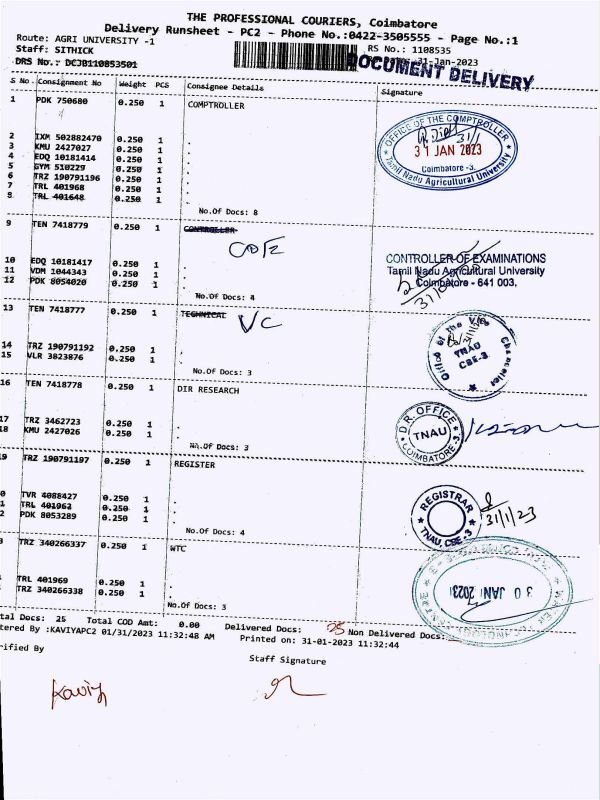 THE PROFESSIONAL COURIERS, Coimbatore
Delivery Runsheet - PC2 - Phone No.:0422-3505555 - Page No.:1
Route: AGRI UNIVERSITY -1
RS No.: 1108535
Staff: SITHICK
31-Jan-2023
DRS No.: DCJB110853501
DOCUMENT DELIVERY
S No Consignment No Weight PCS Consignee Details Signature
1 PDK 750680 0.250 1 COMPTROLLER
2 IXM 502882470 0.250 1 .
3 KMU 2427027 0.250 1 .
4 EDQ 10181414 0.250 1 .
5 GYM 510229 0.250 1 .
6 TRZ 190791196 0.250 1 .
7 TRL 401968 0.250 1 .
8 TRL 401648 0.250 1 .
No.Of Docs: 8
OFFICE OF THE COMPTROLLER
31 JAN 2023
Coimbatore -3.
Tamil Nadu Agricultural University
9 TEN 7418779 0.250 1 CONTROLLER
COE
10 EDQ 10181417 0.250 1 .
11 VDM 1044343 0.250 1 .
12 PDK 8054020 0.250 1 .
No.Of Docs: 4
CONTROLLER OF EXAMINATIONS
Tamil Nadu Agricultural University
Coimbatore - 641 003.
13 TEN 7418777 0.250 1 TECHNICAL
VC
14 TRZ 190791192 0.250 1 .
15 VLR 3823876 0.250 1 .
No.Of Docs: 3
Office of the Vice Chancellor
TNAU
CBE-3
16 TEN 7418778 0.250 1 DIR RESEARCH
17 TRZ 3462723 0.250 1 .
18 KMU 2427026 0.250 1 .
No.Of Docs: 3
D.R. OFFICE
TNAU
COIMBATORE-3
19 TRZ 190791197 0.250 1 REGISTER
0 TVR 4088427 0.250 1 .
1 TRL 401963 0.250 1 .
2 PDK 8053289 0.250 1 .
No.Of Docs: 4
REGISTRAR
TNAU, CBE-3
31/1/23
3 TRZ 340266337 0.250 1 WTC
TRL 401969 0.250 1 .
TRZ 340266338 0.250 1 .
No.Of Docs: 3
30 JAN 2023
tal Docs: 25 Total COD Amt: 0.00 Delivered Docs: 25 Non Delivered Docs:
tered By :KAVIYAPC2 01/31/2023 11:32:48 AM Printed on: 31-01-2023 11:32:44
rified By
Staff Signature
Kaviya